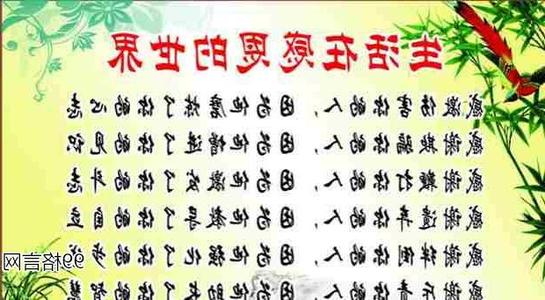 生活在感恩的世界
感激伤害你的人，因为他磨炼了你的心志
感谢欺骗你的人，因为他增进了你的见识
感谢鞭打你的人，因为他激发了你的斗志
感谢遗弃你的人，因为他教导了你的自立
感谢绊倒你的人，因为他强化了你的步
感谢斥责你的人，因为他助长了你的智慧
99格言网